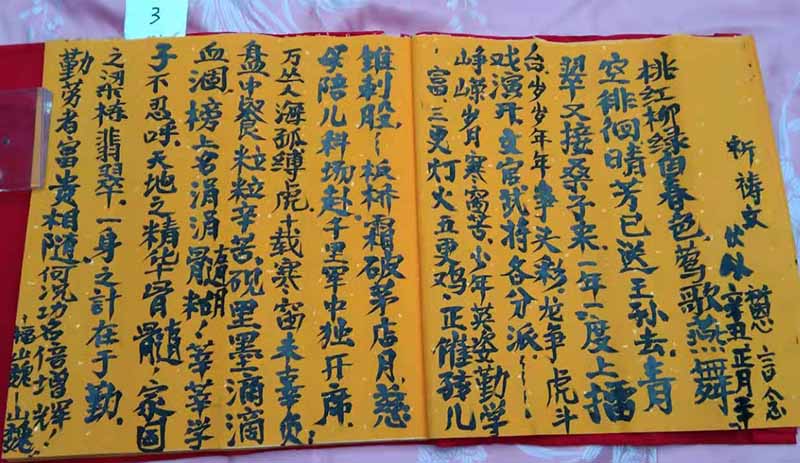 3
祈祷文 伏以
辛丑正月
桃红柳绿自春色莺歌燕舞
空徘徊晴芳已送王孙去.青
翠又接桑子来.一年一度上擂
台岁岁年年争夫彩龙争虎斗
戏演开文官武将各分派
峥嵘岁月寒窗苦.少年英姿勤学
富三更灯火五更鸡.正催孩儿
锥刺股.板桥霜破茅店月.慈
母陪儿科场赴.千里军中独开席.
万丛人海孤缚虎十载寒窗未辜负!
盘中餐粒粒辛苦.砚里墨滴滴
血涸.榜上名涓涓髓糊!莘莘学
子不忍呼.天地之精华骨髓.家国
之梁栋翡翠.一身之计在于勤.
勤劳者富贵相随何况功名倍增辉!